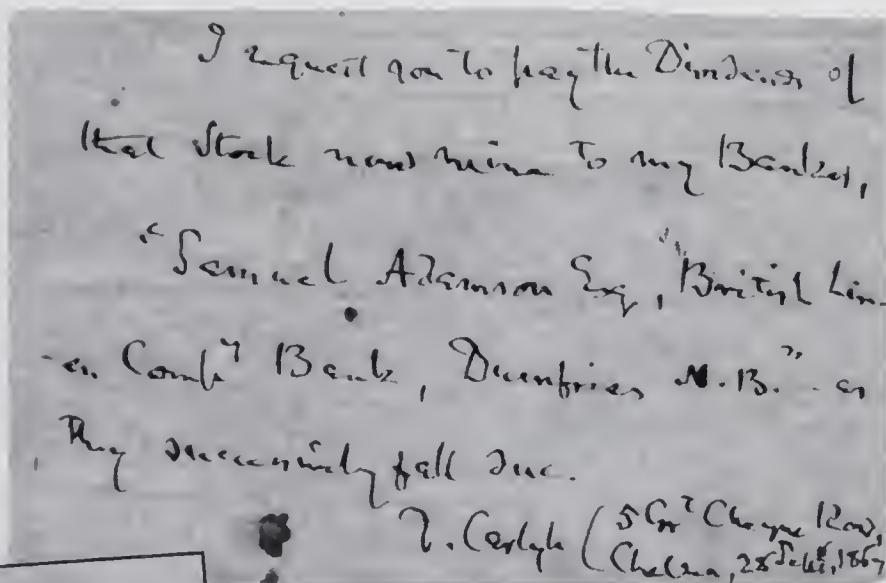 I request you to pay the Dividends of
that Stock now mine to my Banker,
"Samuel Adamson Esq, "British Lin-
-en Comp^y Bank, Dumfries N.B." as
they successively fall due.
T. Carlyle (5 Gr^t Cheyne Row,
Chelsea, 28 1867